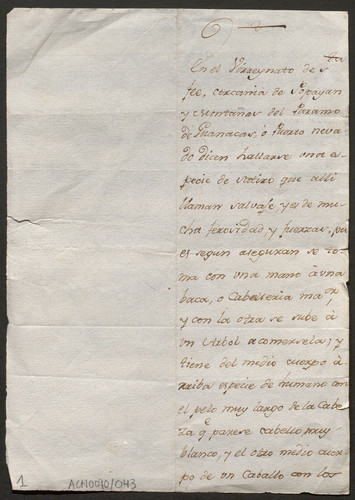 En el Virreynato de S.ta
fee, cercania de Popayan
y Montañas del Paramo
de Guanacas, o Puerto neva
do dicen hallarse una es
pecie de Satiro que alli
llaman salvaje, y es de mu
cha ferocidad y fuerzas, pu
es segun aseguran se to
ma con una mano à una
baca, o Cabelleria maor,
y con la otra se sube à
un Arbol a comersela; y
tiene del medio cuerpo à
rriba especie de humano con
el pelo muy largo de la Cabe
za q.e parese cabello muy
blanco, y el otro medio cuer
po de un Caballo con los
1
ACN0040/043